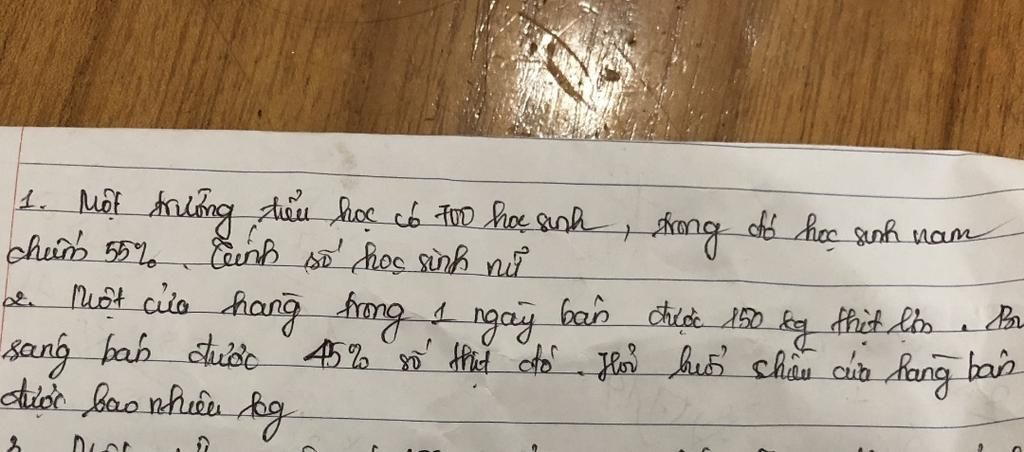 1. Một trường tiểu học có 700 học sinh, trong đó học sinh nam
chiếm 55%. Tính số học sinh nữ
2. Một cửa hàng trong 1 ngày bán được 150 kg thịt lợn.
sáng bán được 45% số thịt đó. Hỏi buổi chiều cửa hàng bán
được bao nhiêu kg